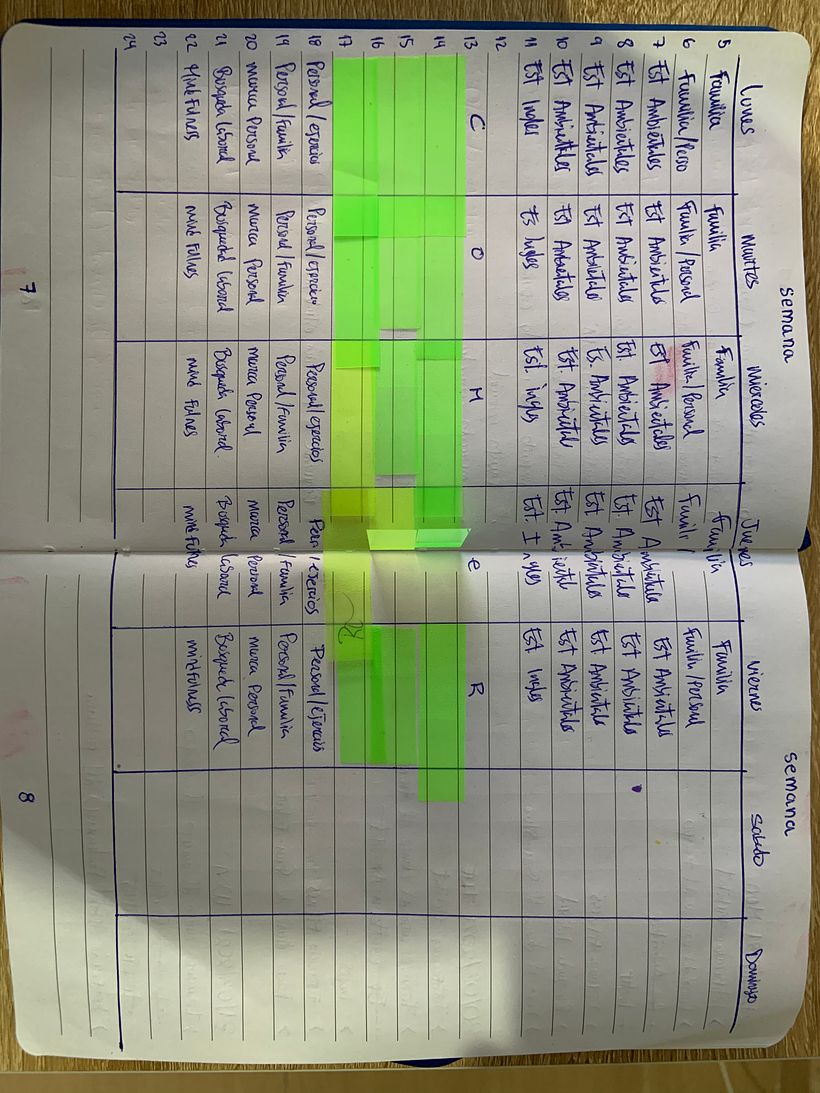 semana semana
Lunes Martes Miercoles Jueves Viernes Sabado Domingo
5 Familia Familia Familia Familia Familia
6 Familia/Perso Familia/Personal Familia/Personal Famili/ Familia/Personal
7 Est Ambientales Est Ambientales Est Ambientales Est Ambientales Est Ambientales
8 Est Ambientales Est Ambientales Est. Ambientales Est Ambientales Est Ambientales
9 Est Ambientales Est Ambientales Es. Ambientales Est Ambientales Est Ambientales
10 Est Ambientales Est Ambientales Est. Ambientales Est. Ambiental Est Ambientales
11 Est Ingles Es Ingles Est. ingles Est. Ingles Est Ingles
12
13 C O M E R
14
15
16
17
18 Personal/ejercicio Personal/ejercicio Personal/ejercicios Pers/ejercicios Personal/ejercicio
19 Personal/Familia Personal/Familia Personal/Familia Personal/Familia Personal/Familia
20 Marca Personal Marca Personal Marca Personal Marca Personal Marca Personal
21 Busqueda Laboral Busqueda Laboral Busqueda Laboral. Busqueda Laboral Busqueda Laboral
22 Mind Fulness mind Fullnes mind Fulnes mind Fulnes mindFulness
23
24
7 8